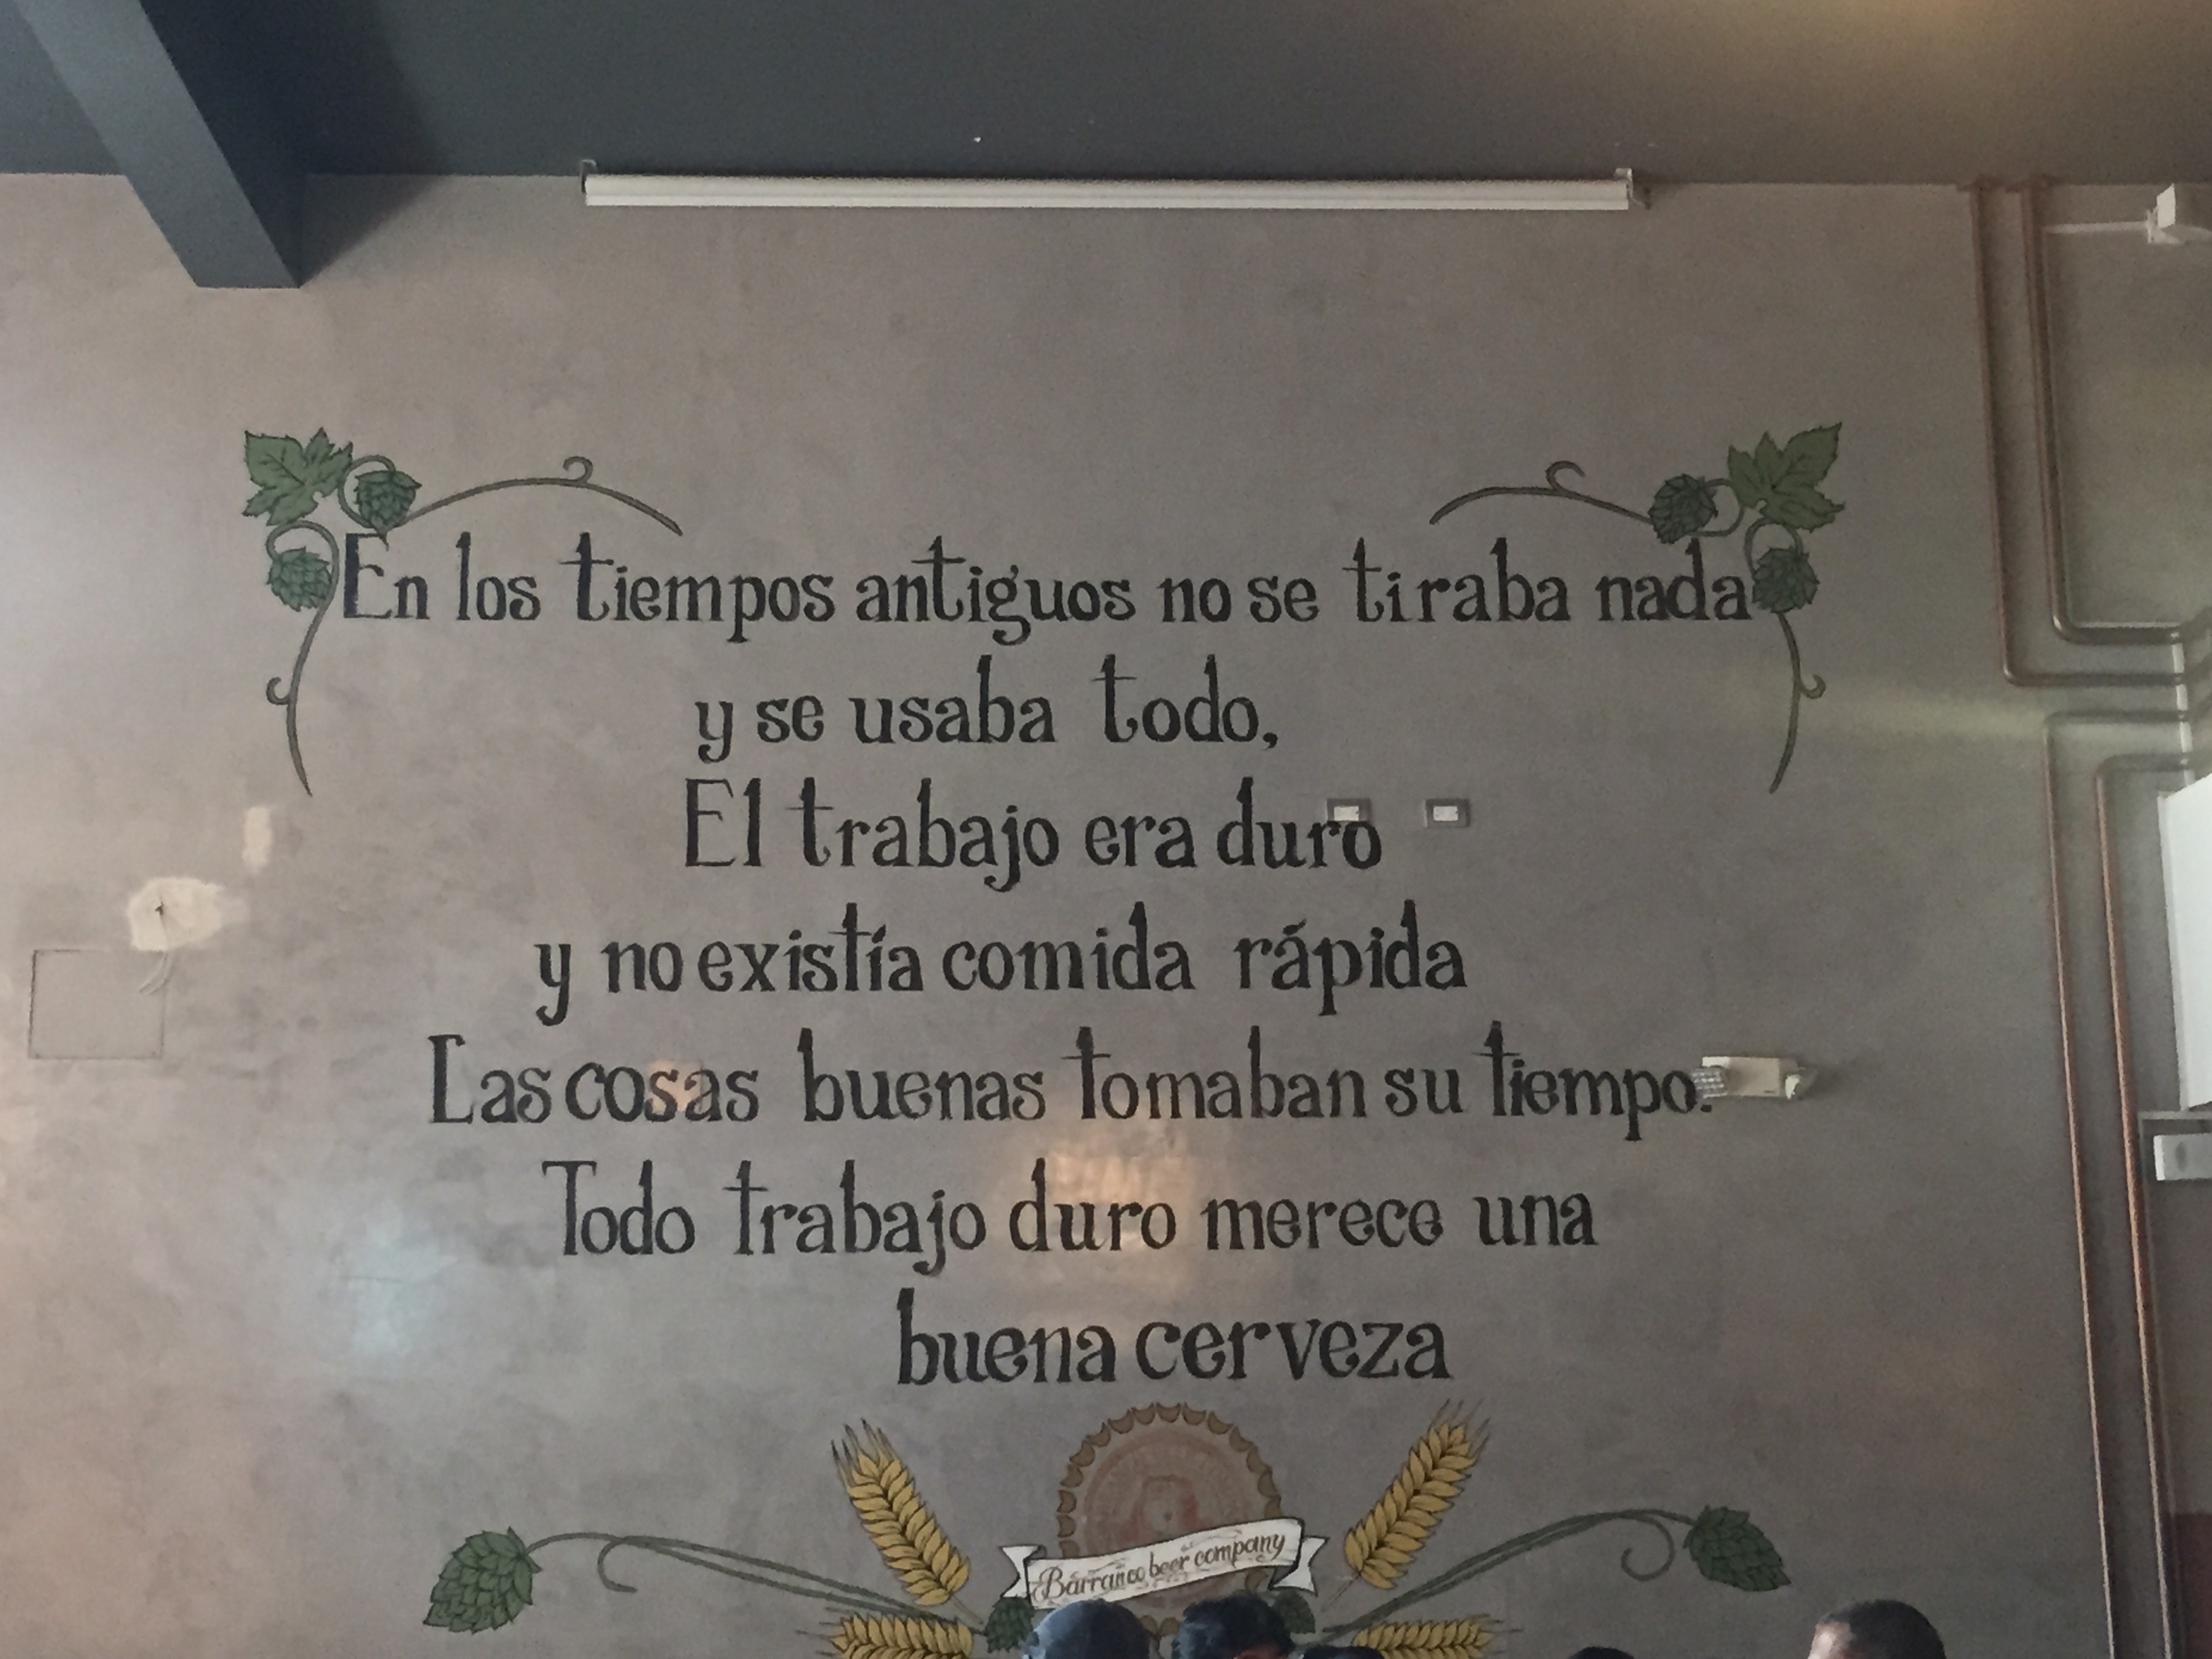 En los tiempos antiguos no se tiraba nada
y se usaba todo,
El trabajo era duro
y no existía comida rápida
Las cosas buenas tomaban su tiempo.
Todo trabajo duro merece una
buena cerveza
Barranco beer company